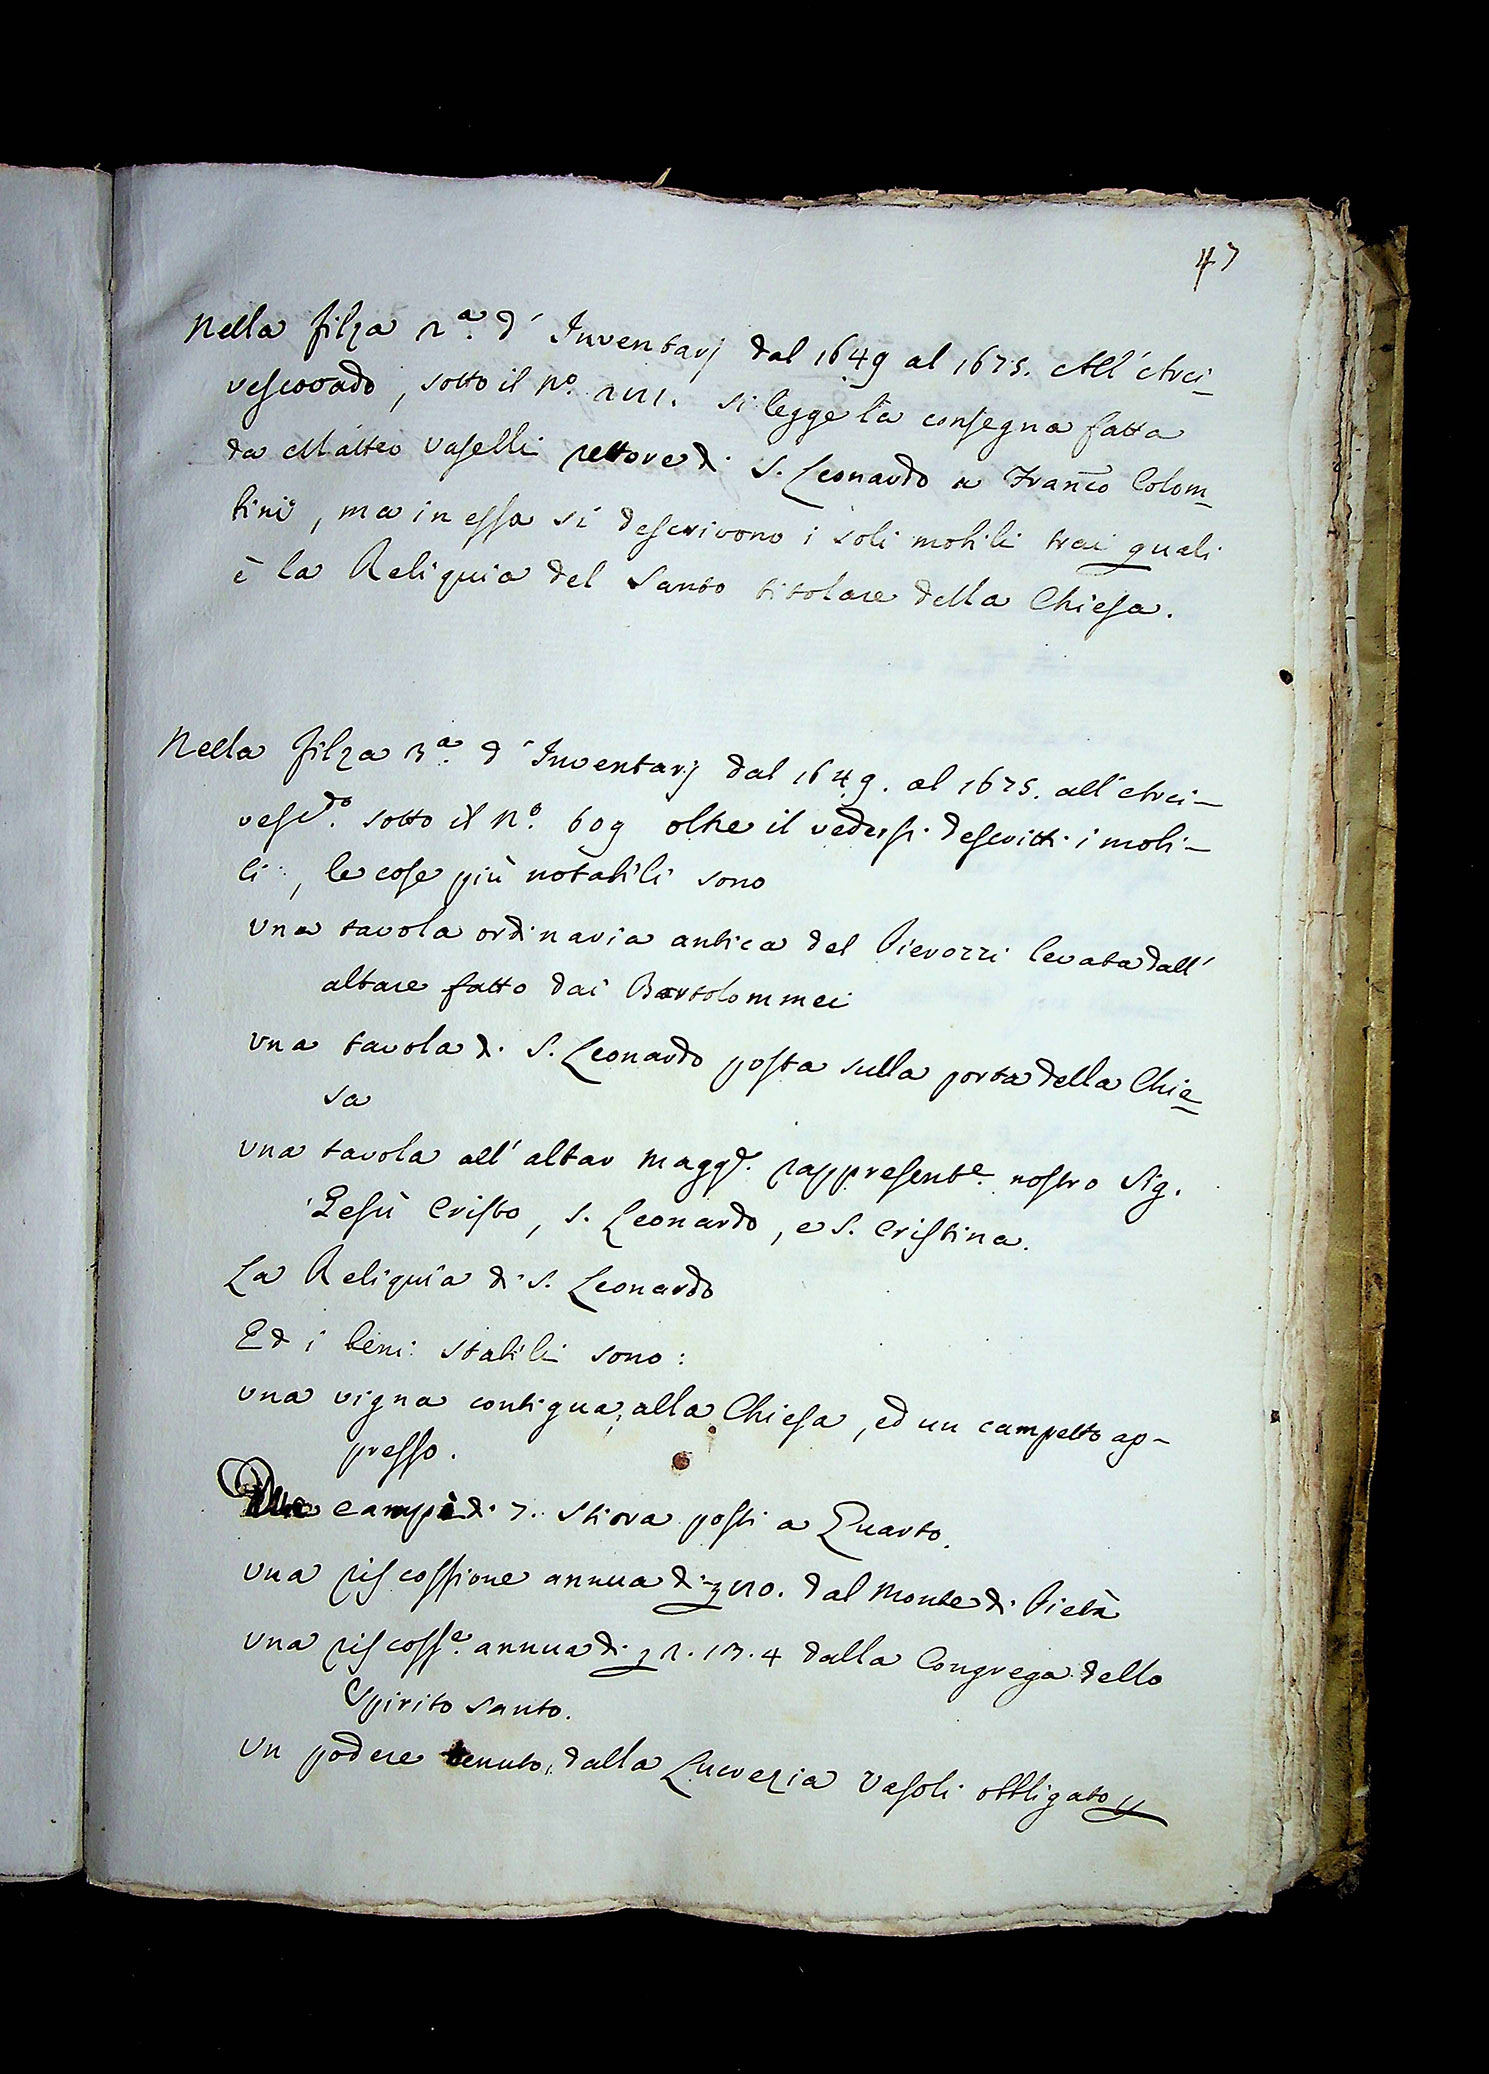 47
Nella filza 2.a d'Inventarj dal 1649 al 1675. All'Arci-
vescovado, sotto il N.o 221. si legge la consegna fatta
da Matteo Vaselli rettore di S. Leonardo a Franco Colom-
bini, ma in essa si descrivono i soli mobili trai quali
è la Reliquia del Santo titolare della Chiesa.
Nella filza 3.a d'Inventarj dal 1649. al 1675. all'Arci-
vescdo. sotto il N.o 609 oltre il vedersi descritti i mobi-
li, le cose più notabili sono
Una tavola ordinaria antica del Pierozzi levata dall'
altare fatto dai Bartolommei
Una tavola di S. Leonardo posta sulla porta della Chie-
sa
Una tavola all'altar Magge. rappresente. nostro Sig.
Gesù Cristo, S. Leonardo, e S. Cristina.
La Reliquia di S. Leonardo
Ed i beni stabili sono:
Una vigna contigua alla Chiesa, ed un campetto ap-
presso.
Due campi di 7. Stiora posti a Quarto.
Una riscossione annua di 20. dal Monte di Pietà
Una riscosse. annua di 2. 13. 4 dalla Congrega dello
Spirito Santo.
Un podere tenuto dalla Lucrezia Vasoli obbligato